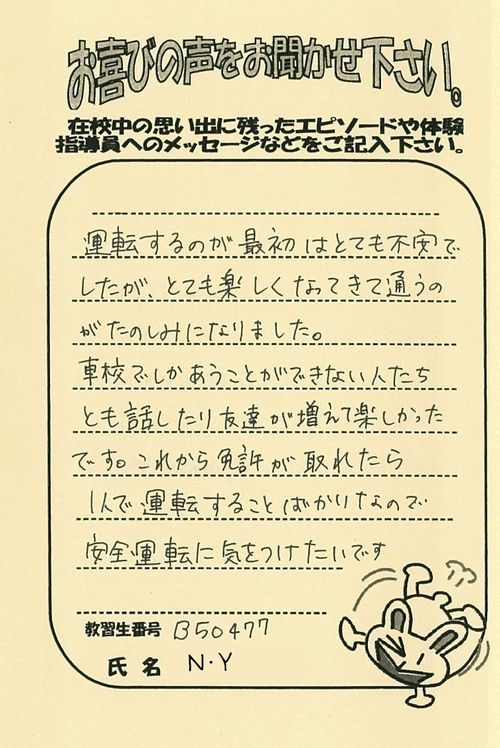 お喜びの声をお聞かせ下さい。
在校中の思い出に残ったエピソードや体験
指導員へのメッセージなどをご記入下さい。
運転するのが最初はとても不安で
したが、とても楽しくなってきて通うの
がたのしみになりました。
車校でしかあうことができない人たち
とも話したり友達が増えて楽しかった
です。これから免許が取れたら
1人で運転することばかりなので
安全運転に気をつけたいです
教習生番号 B50477
氏名 N・Y